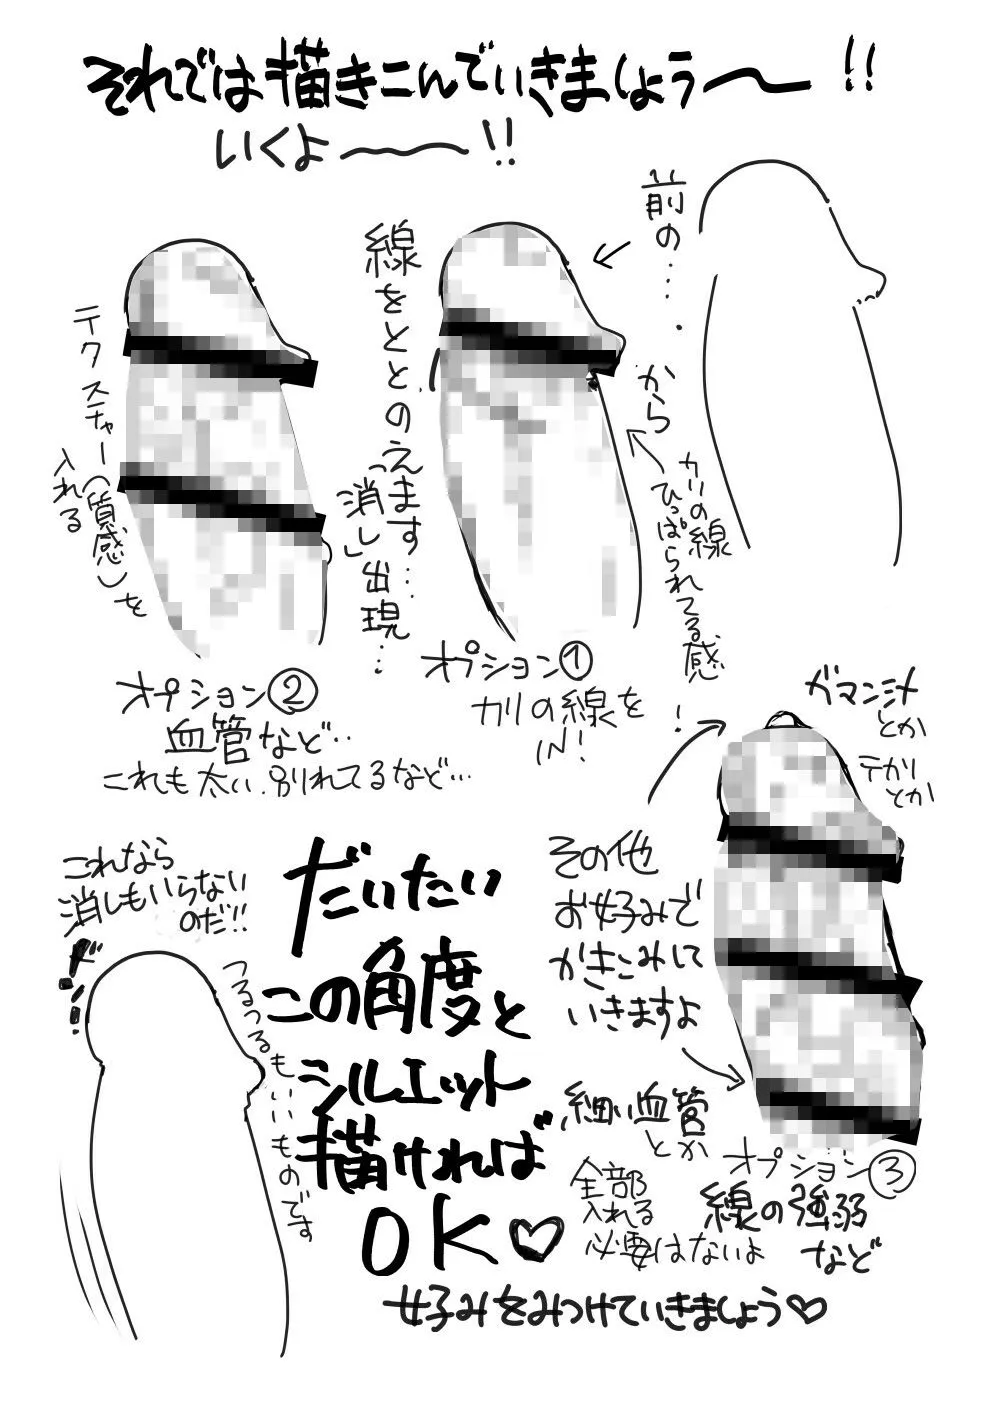 それでは描きこんでいきましょう〜!!
いくよ〜〜!!
前の…
から
カリの線
ひっぱられてる感
線をととのえます…
「消し」出現…
テクスチャー(質感)を
入れる
オプション①
カリの線を
IN!
オプション②
血管など…
これも太い、別れてるなど…
ガマン汁
とか
テカリ
とか
その他
お好みで
かきこみして
いきますよ
!
細い血管
とか
オプション③
線の強弱
など
全部
入れる
必要はないよ
これなら
消しもいらない
のだ!!
つるつるもいいものです
だいたい
この角度と
シルエット
描ければ
OK♡
好みをみつけていきましょう♡